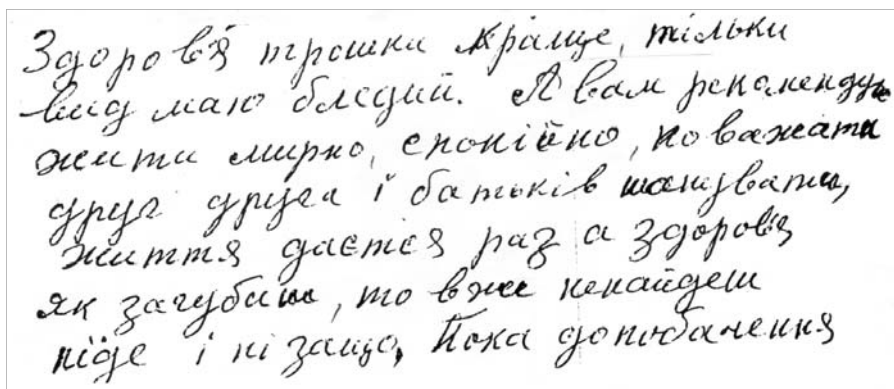 Здоров'я трошки кріпще, тільки
вид маю блєдий. А вам рекомендую
жити мирно, спокійно, поважати
друг друга і батьків шанувати,
життя дається раз а здоров'я
як загубиш, то вже ненайдеш
ніде і ні защо, Пока допобачення